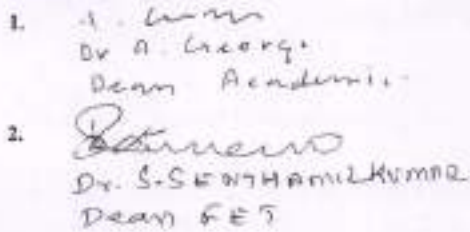 1.
Dr A. George
Dean Academic
2.
Dr. S. SENTHAMILKUMAR
Dean FET